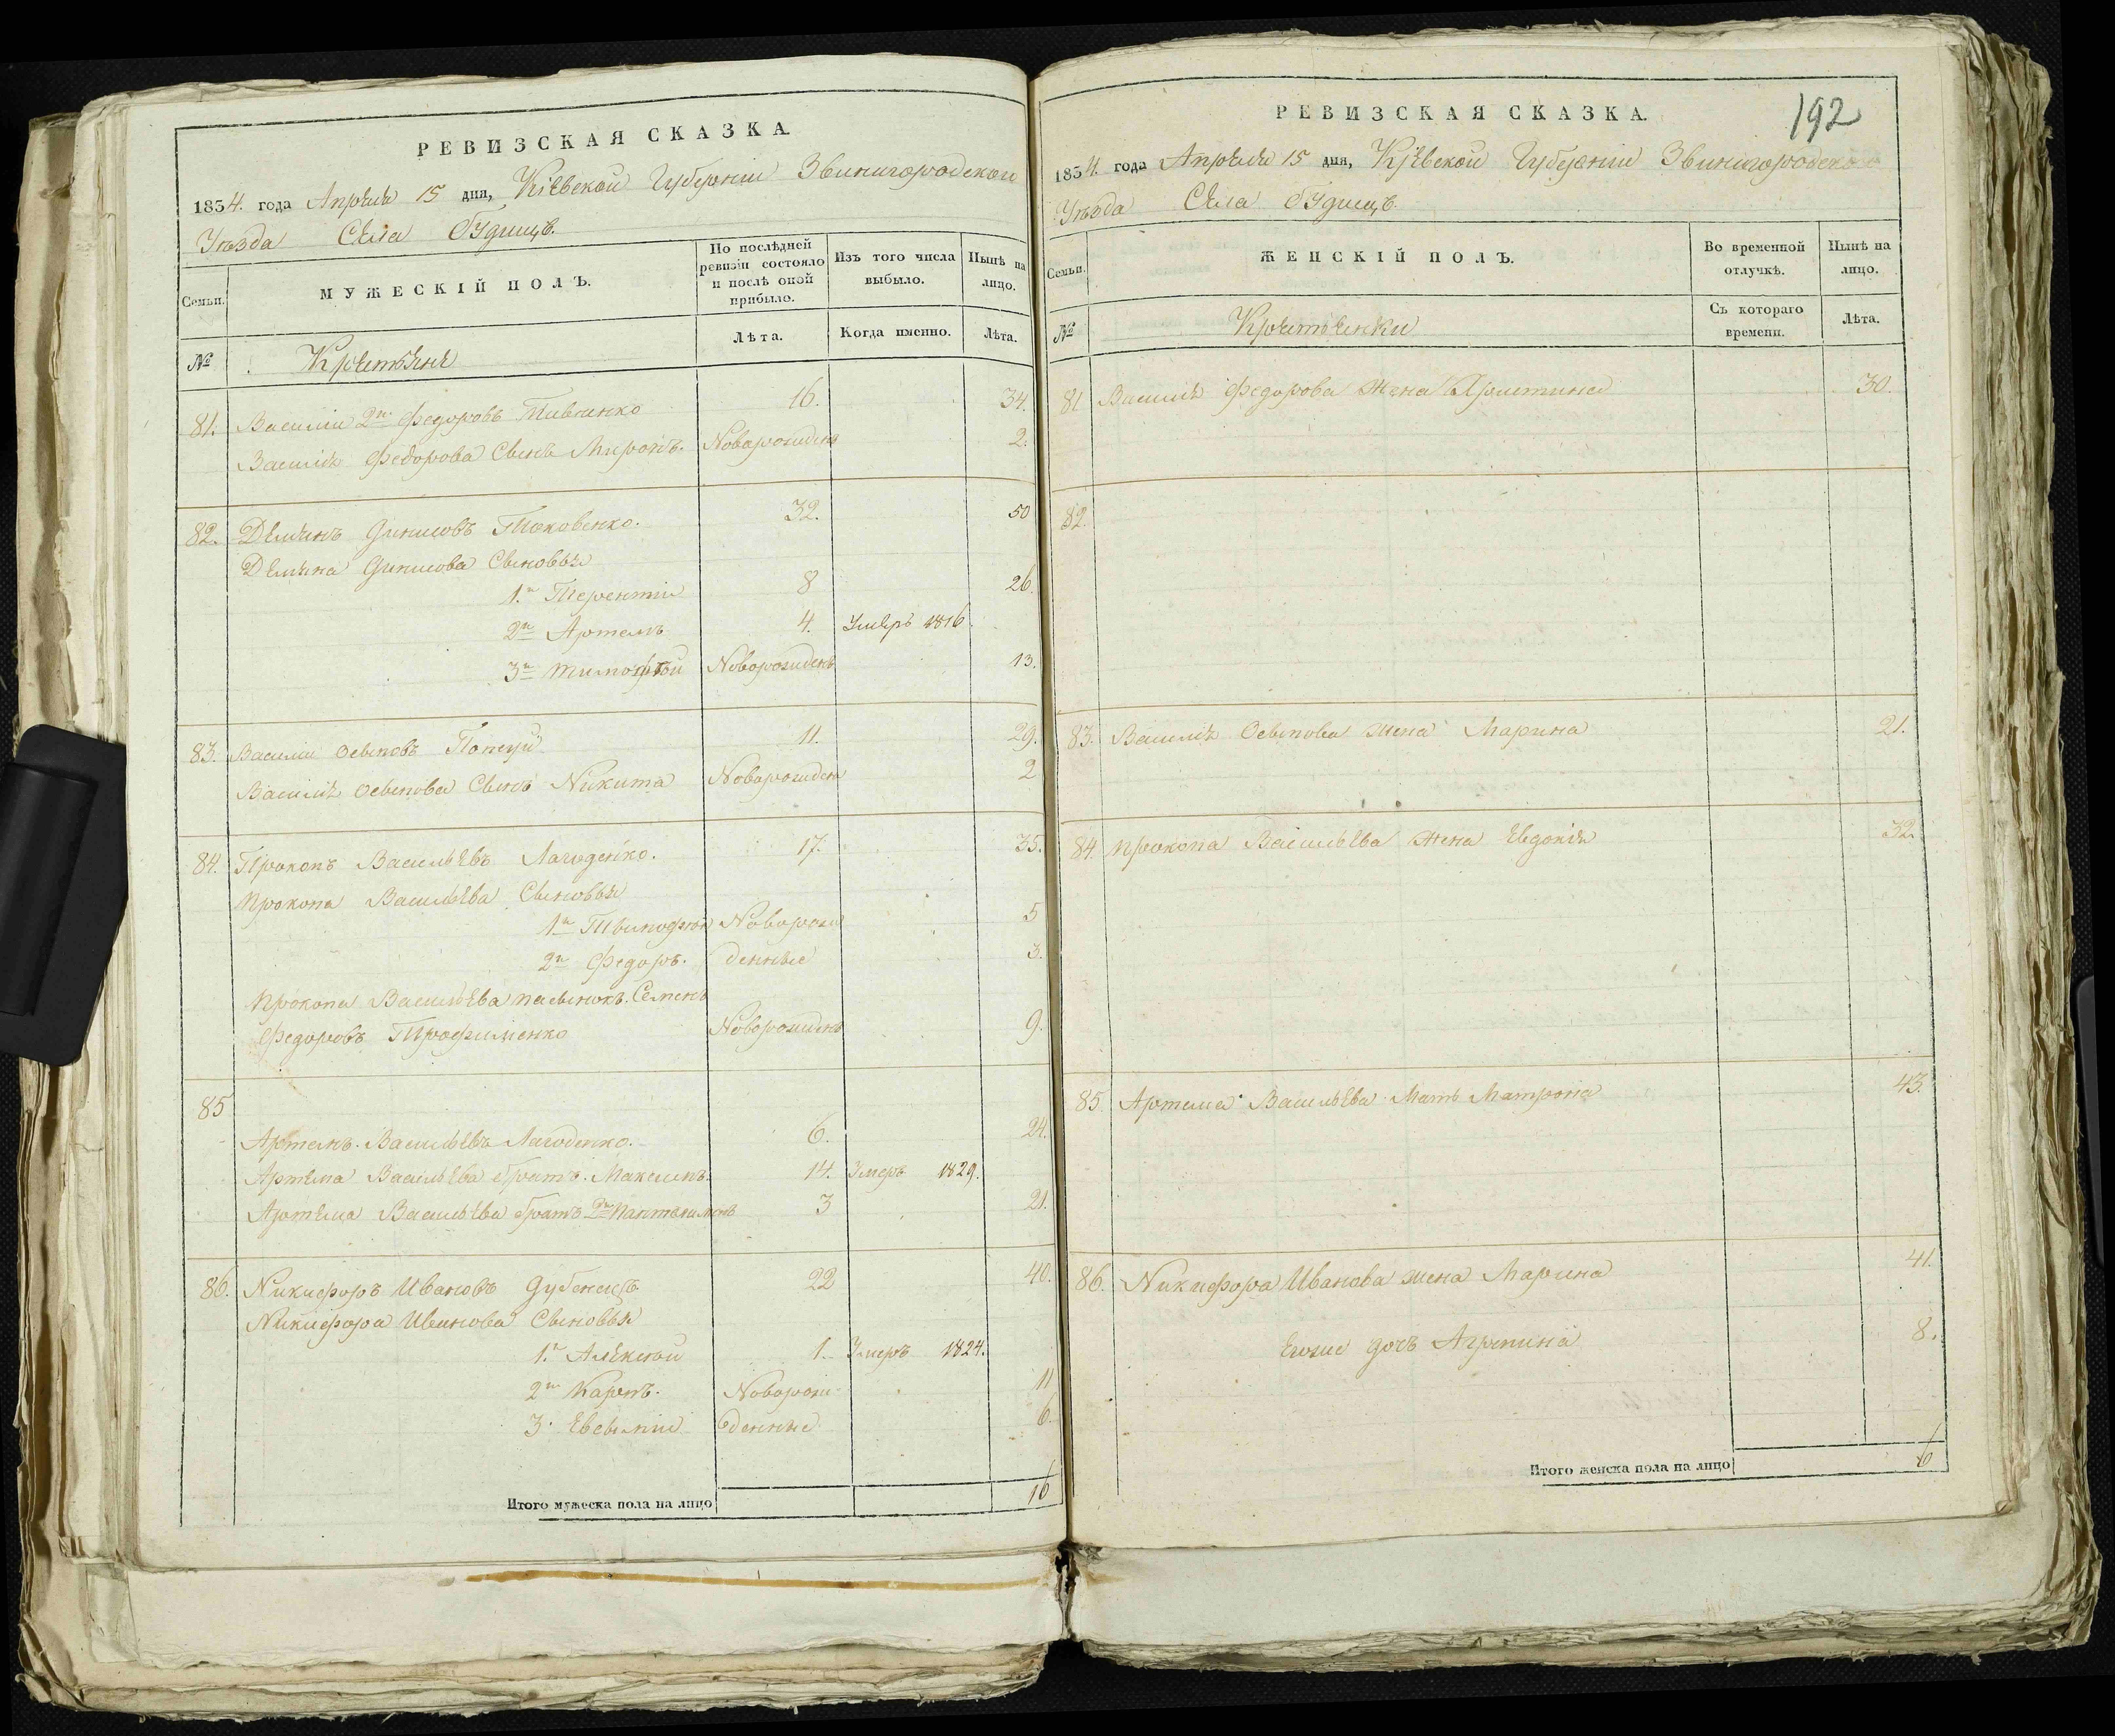 РЕВИЗСКАЯ СКАЗКА.
1834. года Апреля 15 дня, Кіевской Губерніи Звинигородскои
Уѣзда Села Будищъ.
Семьи.
МУЖЕСКІЙ ПОЛЪ.
По послѣдней ревизіи состояло и послѣ оной прибыло.
Изъ того числа выбыло.
Нынѣ на лицо.
№
Крестьяне
Лѣта.
Когда именно.
Лѣта.
81. Василіи 2й Федоровъ 16. 34.
Василія Федорова Сынъ Миронъ. Новорожденъ 2.
82. Демянъ Динисовъ Токовенко. 32. 50
Демяна Динисова Сыновья
1й Терентіи 8 26.
2й Артемъ 4. Умеръ 1816.
3й Тимофѣй Новорожденъ 13.
83. Василіи Осиповъ 11. 29.
Василія Осипова Сынъ Никита Новорожден 2
84. Прокопъ Васильевъ Лагоденко. 17. 35.
Прокопа Васильева Сыновья
1й Тимофѣй Новорож 5
2й Федоръ. денные 3.
Прокопа Васильева пасынокъ. Семенъ
Федоровъ Трофименко Новорожденъ 9.
85
Артемъ. Васильевъ Лагоденко. 6. 24.
Артема Васильева братъ. Максимъ. 14. Умеръ 1829.
Артема Васильева братъ 2й Пантелимонъ 3 21.
86. Никифоръ Ивановъ Дубенецъ 22 40.
Никифора Иванова Сыновья
1й Алексѣй 1. Умеръ 1824.
2й Карпъ. Новорож 11
3. денные 6.
Итого мужеска пола на лицо 16
РЕВИЗСКАЯ СКАЗКА.
192
1834. года Апреля 15 дня, Кіевской Губерніи Звинигородского
Уѣзда Села Будищъ.
Семьи.
ЖЕНСКІЙ ПОЛЪ.
Во временной отлучкѣ.
Нынѣ на лицо.
№
Крестьянки
Съ котораго времени.
Лѣта.
81 Василія Федорова жена Христина 30.
82.
83. Василія Осипова жена Марина 21.
84. Прокопа Васильева жена Евдокія 32.
85. Артема Васильева Мать Матрона 43.
86. Никифора Иванова жена Марина 41.
Егоже дочь Агрепина 8.
Итого женска пола на лицо 6